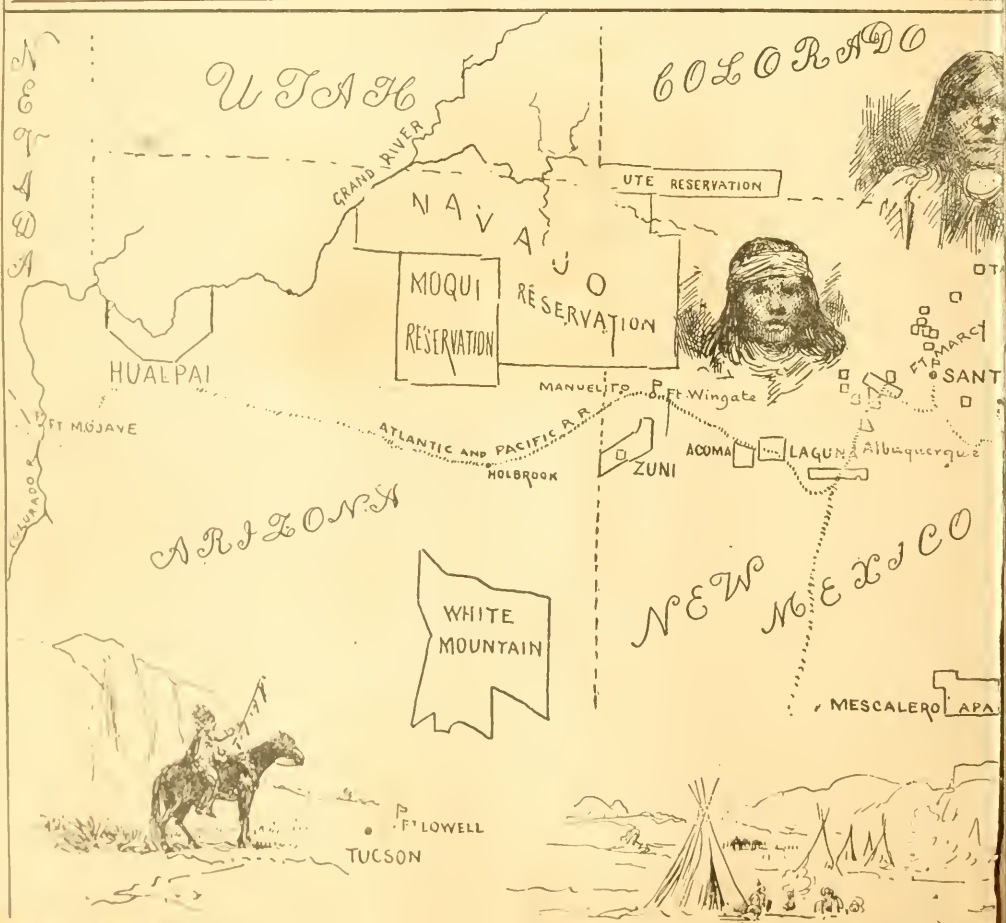 NEVADA
UTAH
COLORADO
GRAND RIVER
UTE RESERVATION
NAVAJO
RESERVATION
MOQUI
RESERVATION
HUALPAI
FT. MARCY
SANT
MANUELITO
Ft. Wingate
FT MOJAVE
ATLANTIC AND PACIFIC R.R.
HOLBROOK
ZUNI
ACOMA
LAGUNA
Albuquerque
COLORADO R
ARIZONA
NEW MEXICO
WHITE
MOUNTAIN
MESCALERO APA
FT LOWELL
TUCSON